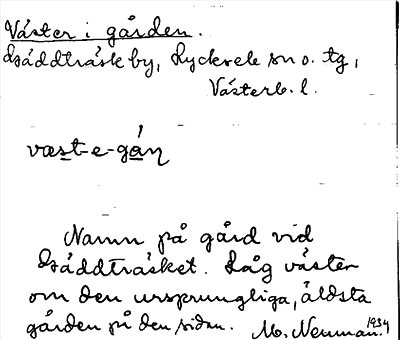 Väster i gården.
Gäddträsk by, Lycksele sn o. tg,
Västerb. l.
væst-e-gán
Namn på gård vid
Gäddträsket. Låg väster
om den ursprungliga, äldsta
gården på den sidan. M. Neuman. 1934